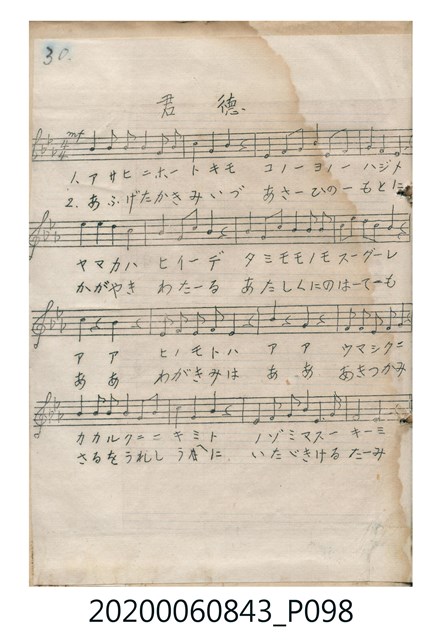 30.
君 徳.
mf
1. アサヒニホートキモ コノーヨノー ハジメ
2. あふげたかきみいづ あさーひのーもとに
ヤマカハ ヒイーデ タミモモノモスーグーレ
かがやき わたーる あたしくにのはーてーも
アア ヒノモトハ アア ウマシクニ
ああ わがきみは ああ あきつかみ
カカルクニニ キミト ノゾミマスー キーミ
さるをうれし いたゞきける たーみ
20200060843_P098